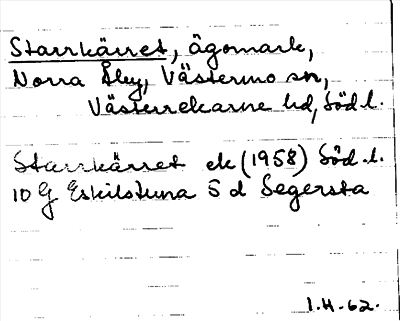 Starrkärret, ägomark,
Norra Åby, Västermo sn,
Västerrekarne hd, Söd.l.
Starrkärret ek (1958) Söd.l.
10 G Eskilstuna S d Segersta
1.H.-62.